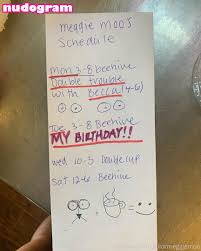 nudogram
meggie moo's
Schedule
Mon 3-8 beehive
Double trouble
with Becca (4-6)
Tue 3-8 Beehive
MY BIRTHDAY!!
wed 10-3 Double cup
Sat 12-6 Beehive
+ =